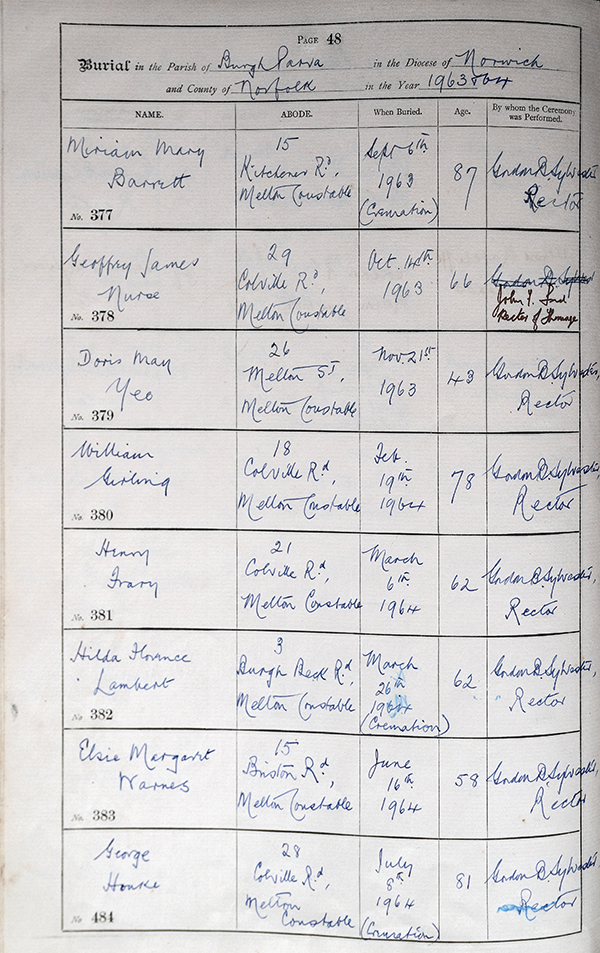 PAGE 48
Burial in the Parish of Burgh Parva in the Diocese of Norwich
and County of Norfolk in the Year 1963 & 64
NAME. ABODE. When Buried. Age. By whom the Ceremony was Performed.
Miriam Mary
Barrett
No. 377
15
Kitchener Rd,
Melton Constable
Sept 6th
1963
(Cremation)
87
Gordon B. Sylvester
Rector
Geoffrey James
Nurse
No. 378
29
Colville Rd,
Melton Constable
Oct. 14th
1963
66
Gordon B. Sylvester
John T.
Rector of Thornage
Doris May
Yeo
No. 379
26
Melton St,
Melton Constable
Nov. 21st
1963
43
Gordon B. Sylvester,
Rector
William
Girling
No. 380
18
Colville Rd,
Melton Constable
Feb.
19th
1964
78
Gordon B. Sylvester,
Rector
Henry
Frary
No. 381
21
Colville Rd,
Melton Constable
March
6th
1964
62
Gordon B. Sylvester,
Rector
Hilda Florence
Lambert
No. 382
3
Burgh Beck Rd,
Melton Constable
March
26th
1964
(Cremation)
62
Gordon B. Sylvester,
Rector
Elsie Margaret
Warnes
No. 383
15
Briston Rd,
Melton Constable
June
16th
1964
58
Gordon B. Sylvester,
Rector
George
No. 484
28
Colville Rd,
Melton
Constable
July
8th
1964
(Cremation)
81
Gordon B. Sylvester,
Rector